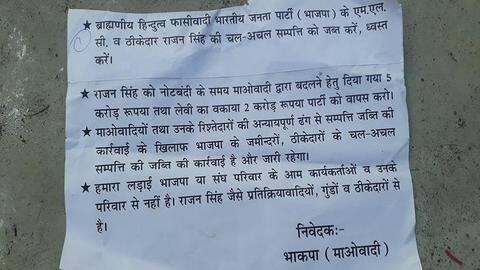 ★ ब्राह्मणीय हिन्दुत्व फासीवादी भारतीय जनता पार्टी (भाजपा) के एम.एल.
सी. व ठीकेदार राजन सिंह की चल-अचल सम्पत्ति को जब्त करें, ध्वस्त
करें।
★ राजन सिंह को नोटबंदी के समय माओवादी द्वारा बदलने हेतु दिया गया 5
करोड़ रूपया तथा लेवी का वकाया 2 करोड़ रूपया पार्टी को वापस करो।
★ माओवादियों तथा उनके रिश्तेदारों की अन्यायपूर्ण ढंग से सम्पत्ति जब्ति की
कार्रवाई के खिलाफ भाजपा के जमीन्दरों, ठीकेदारों के चल-अचल
सम्पत्ति की जब्ति की कार्रवाई है और जारी रहेगा।
★ हमारा लड़ाई भाजपा या संघ परिवार के आम कार्यकर्ताओं व उनके
परिवार से नहीं है। राजन सिंह जैसे प्रतिक्रियावादियों, गुंडों व ठीकेदारों से
है।
निवेदक:-
भाकपा (माओवादी)